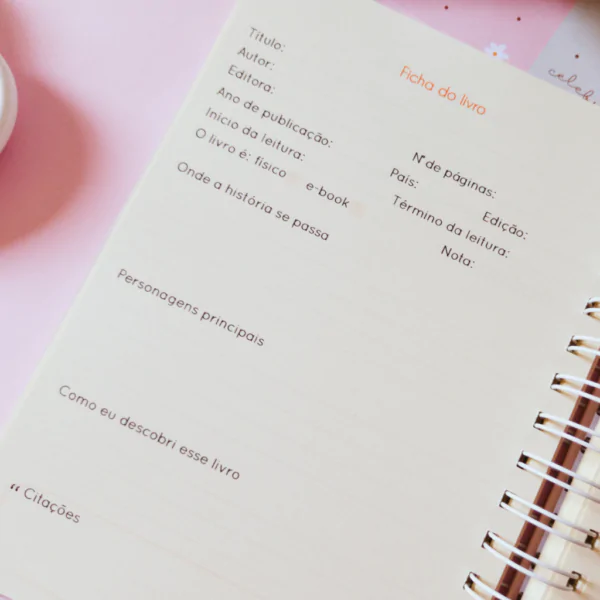 Ficha do livro
Título:
Autor:
Editora:
Ano de publicação: Nº de páginas:
Início da leitura: País: Edição:
O livro é: físico e-book Término da leitura:
Nota:
Onde a história se passa
Personagens principais
Como eu descobri esse livro
“ Citações